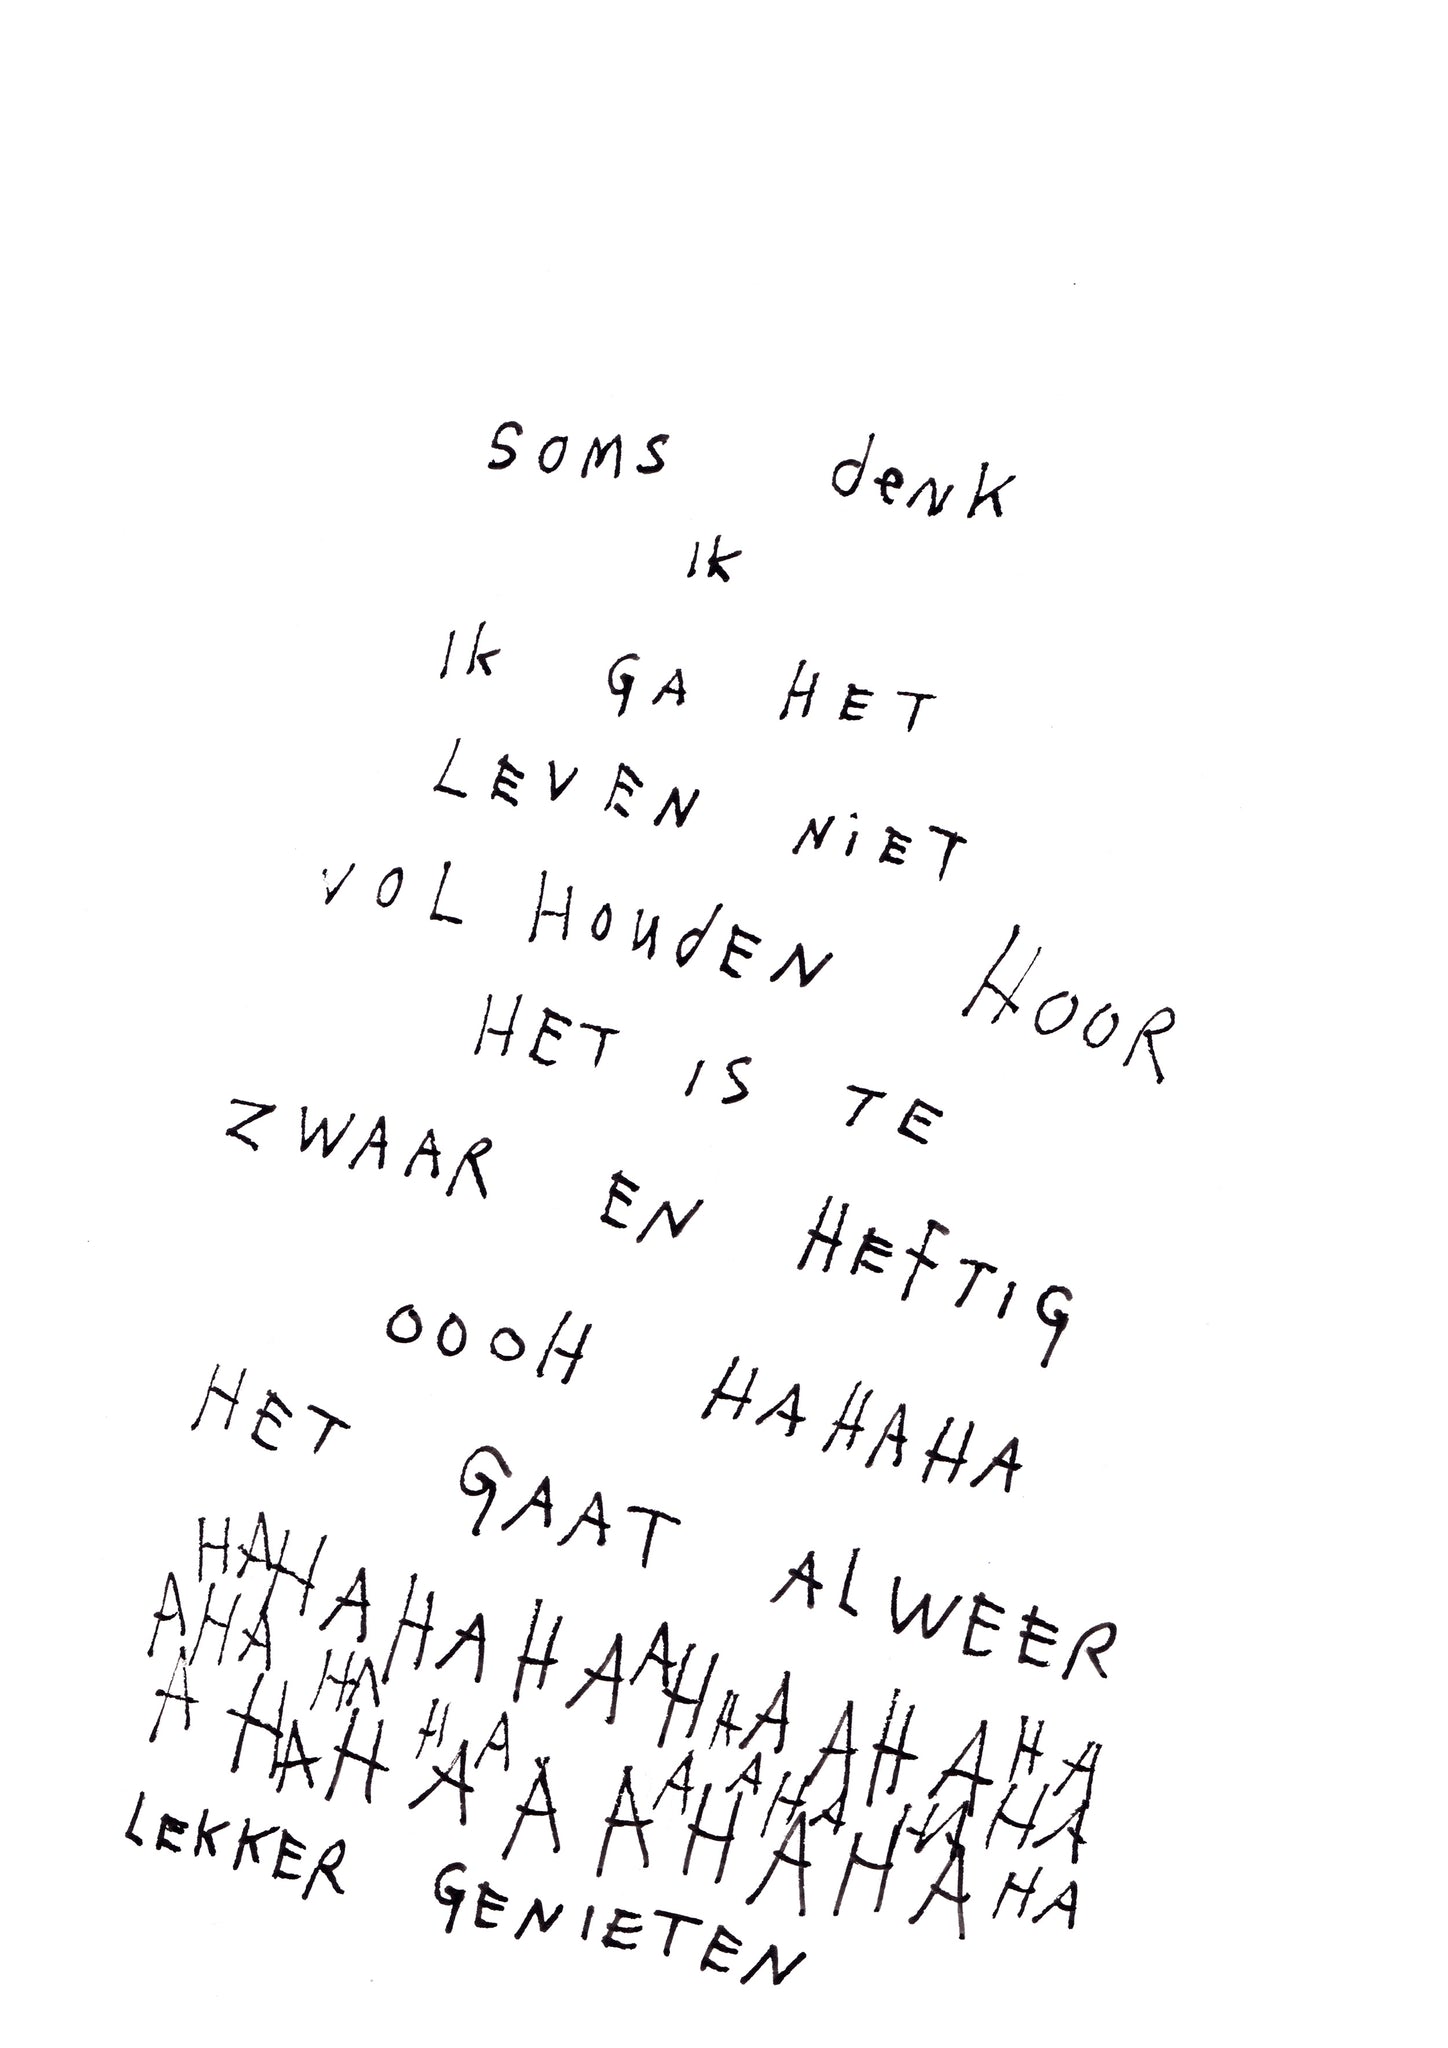 SOMS denk
IK
IK GA HET
LEVEN NiET
VOL HOUdEN HOOR
HET IS TE
ZWAAR EN HEfTIG
OOOH HAHAHA
HET GAAT ALWEER
HAHAHAHAHAAHAAAHAHA
AHA HA HA AAHAHAHA
A HAHAAAAHAHAHA
LEKKER GENIETEN